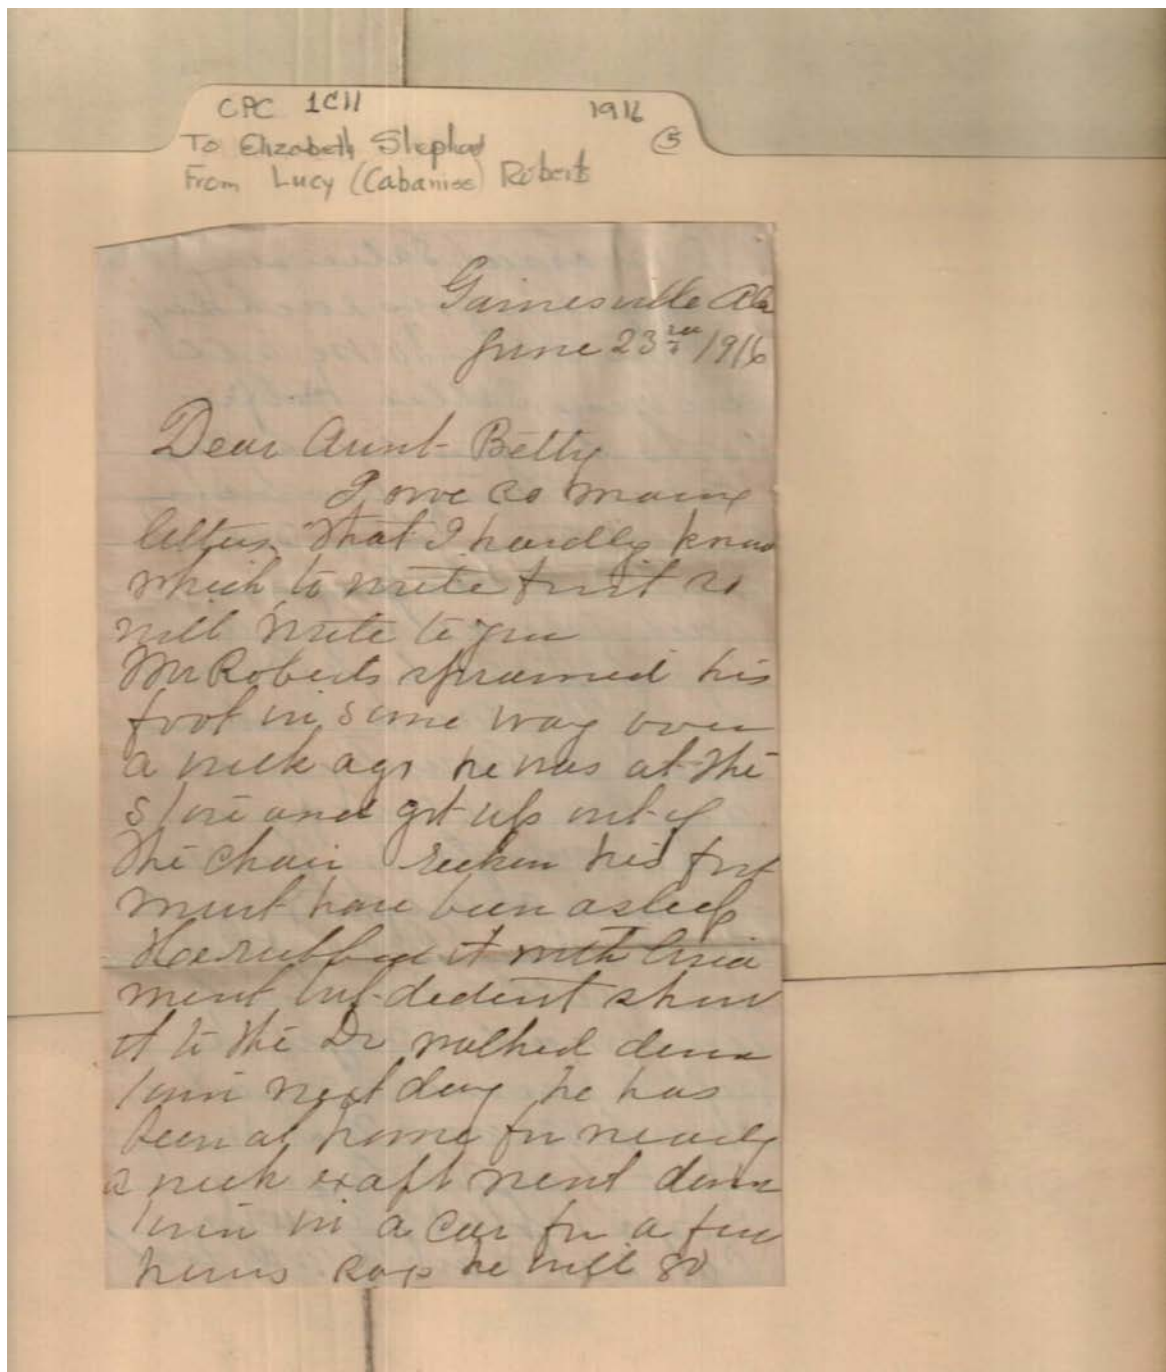 CPC 1C11 1916
To Elizabeth Shephard (5)
From Lucy (Cabaniss) Roberts
Gainesville Ala
June 23rd 1916
Dear Aunt Betty
I owe so many
letters that I hardly know
which to write first so
will write to you
Mr Roberts sprained his
foot in some way over
a week ago he was at the
store and got up out of
the chair reckon his foot
must have been asleep
He rubbed it with lina
ment but dident show
it to the Dr walked down
town next day he has
been at home for nearly
a week exapt went down
town in a car for a few
hours says he will go